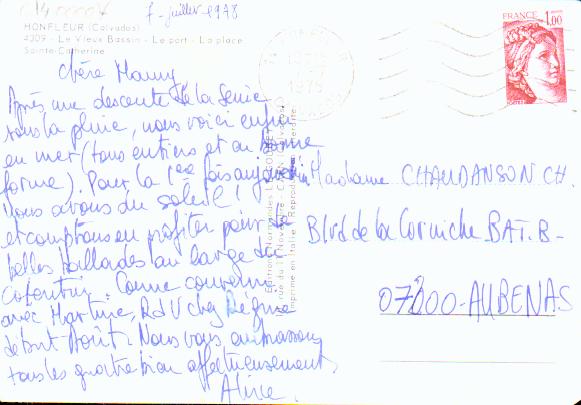 7 - juillet 1978
HONFLEUR (Calvados)
4309 - Le Vieux Bassin - Le port - La place
Sainte-Catherine
FRANCE
1,00
POSTES
Chère Mamy,
Après une descente de la Seine
sous la pluie, nous voici enfin
en mer (tous entiers et en bonne
forme). Pour la 1ère fois aujourd'hui
nous avons du soleil !
et comptons en profiter pour de
belles ballades au large du
Cotentin. Comme convenu
avec Martine, RdV chez Régine
début Août. Nous vous embrassons
tous les quatre bien affectueusement,
Aline.
Madame CHAUDANSON CH.
Blvd de la Corniche BAT. B -
07200 - AUBENAS